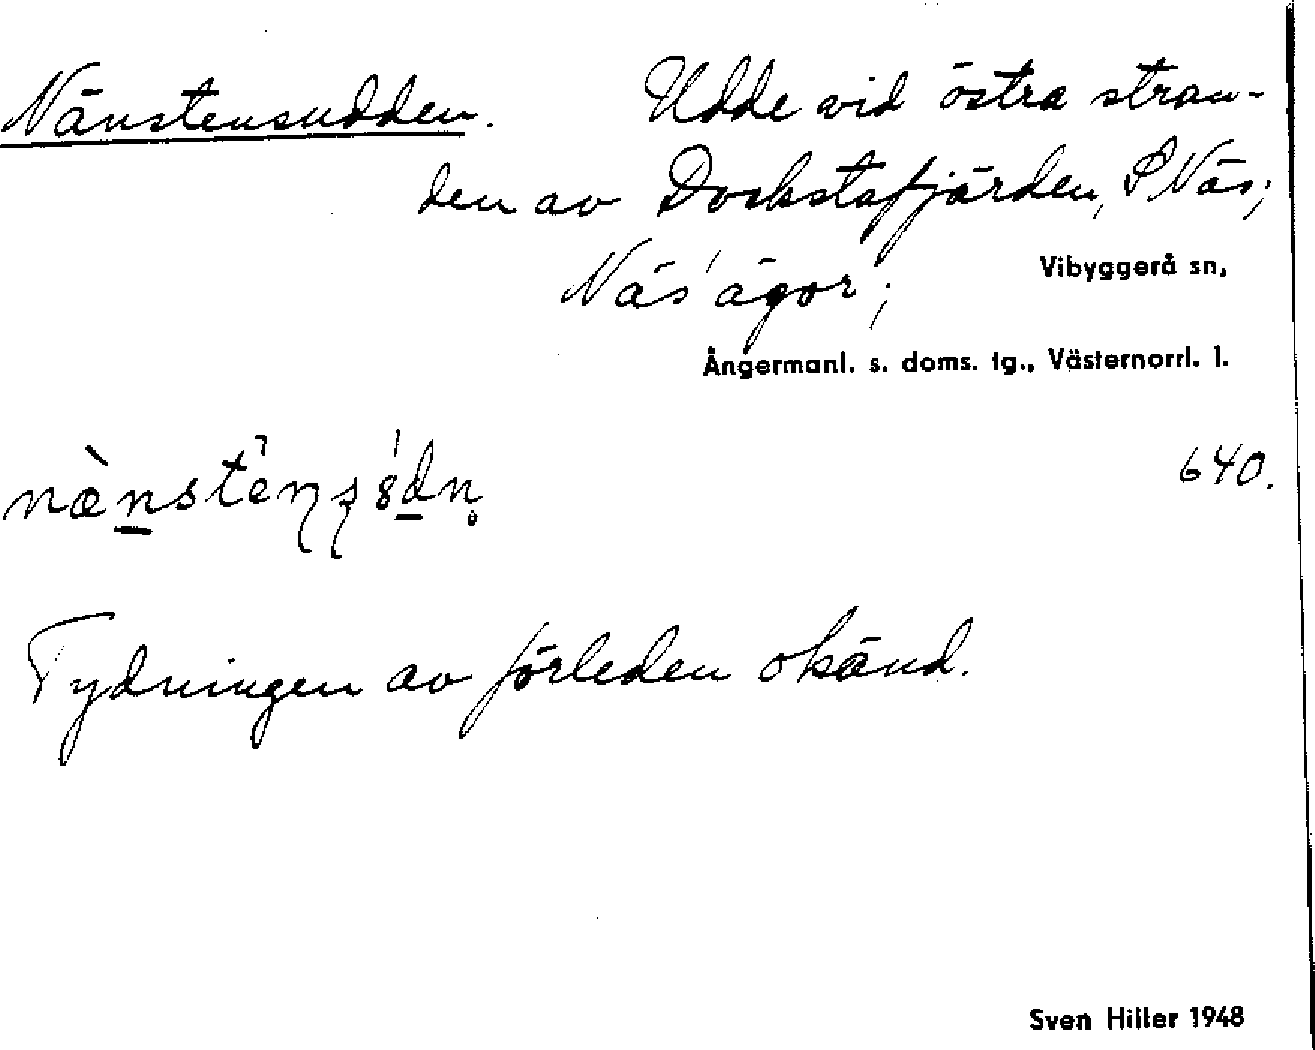 Nänstensudden. Udde vid östra stran-
den av Dockstafjärden, S Näs;
Näs' ägor;
Vibyggerå sn,
Ångermanl. s. doms. tg., Västernorrl. l.
640.
Tydningen av förleden okänd.
Sven Hiller 1948